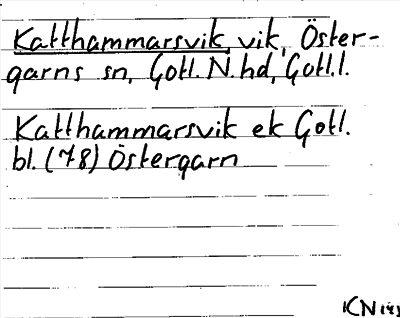 Katthammarsvik, vik, Öster-
garns sn, Gotl. N. hd, Gotl. l.
Katthammarsvik ek Gotl.
bl. (78) Östergarn
KN